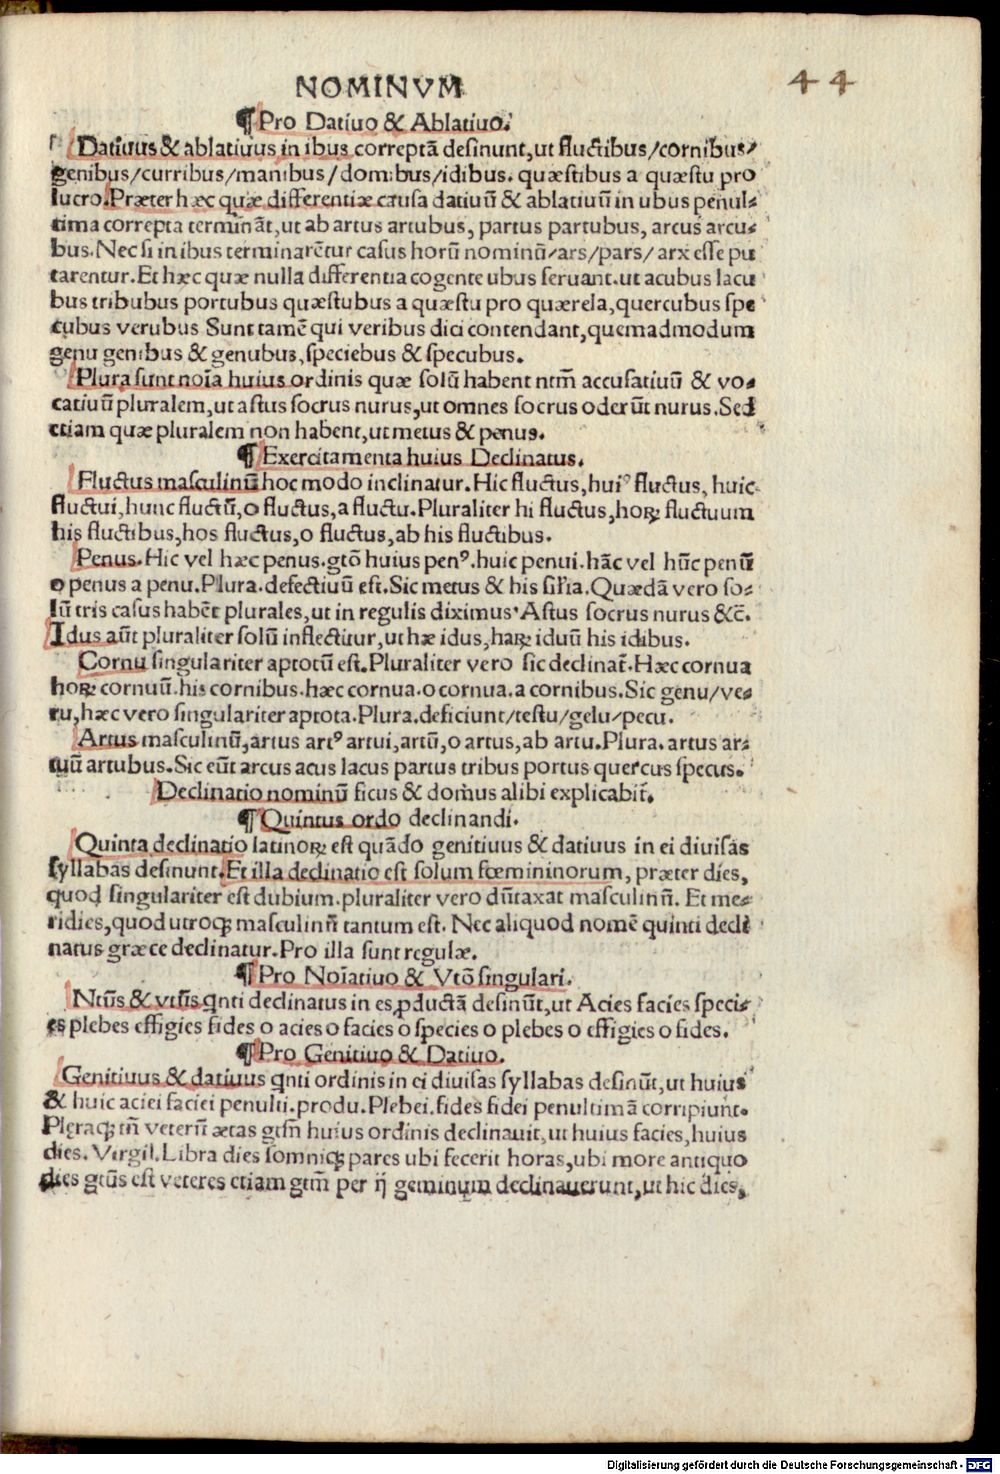 NOMINVM
44
¶Pro Datiuo & Ablatiuo.
Datiuus & ablatiuus in ibus correptã desinunt,ut fluctibus/cornibus/
genibus/curribus/manibus/domibus/idibus. quæstibus a quæstu pro
lucro.Præter hæc quæ differentiæ causa datiuũ & ablatiuũ in ubus penul-
tima correpta terminãt,ut ab artus artubus, partus partubus, arcus arcu-
bus.Nec si in ibus terminarētur casus horũ nominũ/ars/pars/arx esse pu
tarentur.Et hæc quæ nulla differentia cogente ubus seruant.ut acubus lacu
bus tribubus portubus quæstubus a quæstu pro quærela,quercubus spe
cubus verubus Sunt tamē qui veribus dici contendant,quemadmodum
genu genibus & genubus,speciebus & specubus.
Plura sunt noĩa huius ordinis quæ solũ habent ntm̃ accusatiuũ & vo-
catiuũ pluralem,ut astus socrus nurus,ut omnes socrus oderũt nurus.Sed
etiam quæ pluralem non habent,ut metus & penus.
¶Exercitamenta huius Declinatus.
Fluctus masculinũ hoc modo inclinatur.Hic fluctus,huiꝰ fluctus, huic
fluctui,hunc fluctũ,o fluctus,a fluctu.Pluraliter hi fluctus,hoꝝ fluctuum
his fluctibus,hos fluctus,o fluctus,ab his fluctibus.
Penus.Hic vel hæc penus.gtõ huius penꝰ.huic penui.hãc vel hũc penũ
o penus a penu.Plura.defectiuũ est.Sic metus & his sil'ia.Quædã vero so-
lũ tris casus habēt plurales,ut in regulis diximus.Astus socrus nurus &c̃.
Idus aũt pluraliter solũ inflectitur,ut hæ idus,haꝝ iduũ his idibus.
Cornu singulariter aptotũ est.Pluraliter vero sic declinat̃.Hæc cornua
hoꝝ cornuũ.his cornibus.hæc cornua.o cornua.a cornibus.Sic genu/ve-
ru,hæc vero singulariter aptota.Plura.deficiunt/testu/gelu/pecu.
Artus masculinũ,artus artꝰ artui,artũ,o artus,ab artu.Plura.artus ar-
tuũ artubus.Sic eũt arcus acus lacus partus tribus portus quercus specus.
Declinatio nominũ ficus & domus alibi explicabit̃.
¶Quintus ordo declinandi.
Quinta declinatio latinoꝝ est quãdo genitiuus & datiuus in ei diuisas
syllabas desinunt.Et illa declinatio est solum fœmininorum, præter dies,
quod singulariter est dubium.pluraliter vero dũtaxat masculinũ. Et me-
ridies,quod utroqꝫ masculinũ tantum est. Nec aliquod nomē quinti decli
natus græce declinatur.Pro illa sunt regulæ.
¶Pro Noĩatiuo & Vtõ singulari.
Ntũs & vtũs qnti declinatus in es ꝓductã desinũt,ut Acies facies speci-
es plebes effigies fides o acies o facies o species o plebes o effigies o fides.
¶Pro Genitiuo & Datiuo.
Genitiuus & datiuus qnti ordinis in ei diuisas syllabas desinũt,ut huius
& huic aciei faciei penulti.produ.Plebei.fides fidei penultimã corripiunt.
Pleraqꝫ tñ veterũ ætas gtm̃ huius ordinis declinauit,ut huius facies,huius
dies. Virgil.Libra dies somniqꝫ pares ubi fecerit horas,ubi more antiquo
dies gtũs est veteres etiam gtm̃ per ij geminum declinauerunt,ut hic dies,
Digitalisierung gefördert durch die Deutsche Forschungsgemeinschaft - DFG